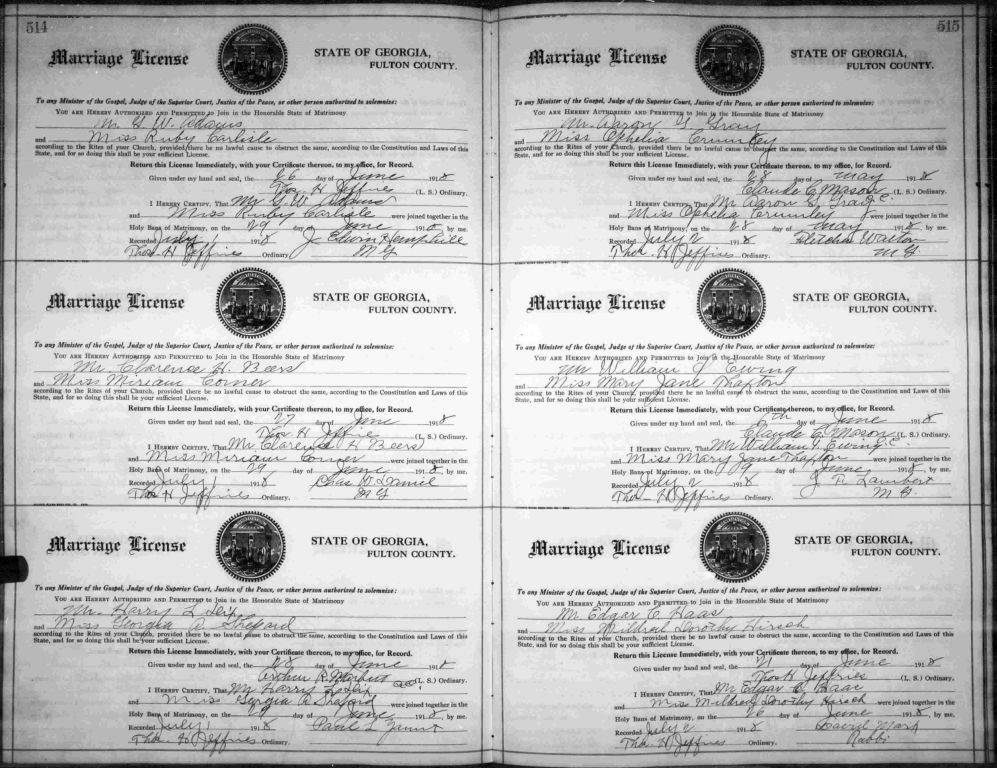 514
Marriage License
STATE OF GEORGIA,
FULTON COUNTY.
To any Minister of the Gospel, Judge of the Superior Court, Justice of the Peace, or other person authorized to solemnize:
YOU ARE HEREBY AUTHORIZED AND PERMITTED to Join in the Honorable State of Matrimony
Mr. G. W. Adams
and Miss Ruby Carlisle
according to the Rites of your Church, provided there be no lawful cause to obstruct the same, according to the Constitution and Laws of this
State, and for so doing this shall be your sufficient License.
Return this License Immediately, with your Certificate thereon, to my office, for Record.
Given under my hand and seal, the 26 day of June 1918
Thos. H Jeffries (L. S.) Ordinary.
I HEREBY CERTIFY, That Mr G. W. Adams
and Miss Ruby Carlisle were joined together in the
Holy Bans of Matrimony, on the 29 day of June 1918, by me.
Recorded July 1 1918 J Edwin Hemphill
Thos. H Jeffries Ordinary. M G
Marriage License
STATE OF GEORGIA,
FULTON COUNTY.
To any Minister of the Gospel, Judge of the Superior Court, Justice of the Peace, or other person authorized to solemnize:
YOU ARE HEREBY AUTHORIZED AND PERMITTED to Join in the Honorable State of Matrimony
Mr. Clarence H. Beers
and Miss Miriam Corner
according to the Rites of your Church, provided there be no lawful cause to obstruct the same, according to the Constitution and Laws of this
State, and for so doing this shall be your sufficient License.
Return this License Immediately, with your Certificate thereon, to my office, for Record.
Given under my hand and seal, the 27 day of June 1918
Thos H (L. S.) Ordinary.
I HEREBY CERTIFY, That Mr Clarence H Beers
and Miss Miriam Corner were joined together in the
Holy Bans of Matrimony, on the 29 day of June 1918, by me.
Recorded July 1 1918 Chas W Daniel
Thos H Jeffries Ordinary. M G
Marriage License
STATE OF GEORGIA,
FULTON COUNTY.
To any Minister of the Gospel, Judge of the Superior Court, Justice of the Peace, or other person authorized to solemnize:
YOU ARE HEREBY AUTHORIZED AND PERMITTED to Join in the Honorable State of Matrimony
Mr. Harry L
and Miss Georgia A Shepard
according to the Rites of your Church, provided there be no lawful cause to obstruct the same, according to the Constitution and Laws of this
State, and for so doing this shall be your sufficient License.
Return this License Immediately, with your Certificate thereon, to my office, for Record.
Given under my hand and seal, the 28 day of June 1918
Arthur R (L. S.) Ordinary.
I HEREBY CERTIFY, That Mr Harry L
and Miss Georgia A Shepard were joined together in the
Holy Bans of Matrimony, on the 29 day of June 1918, by me.
Recorded July 1 1918
Thos. H Jeffries Ordinary.
515
Marriage License
STATE OF GEORGIA,
FULTON COUNTY.
To any Minister of the Gospel, Judge of the Superior Court, Justice of the Peace, or other person authorized to solemnize:
YOU ARE HEREBY AUTHORIZED AND PERMITTED to Join in the Honorable State of Matrimony
Mr. Aaron G. Gray
and Miss Ophelia Crumley
according to the Rites of your Church, provided there be no lawful cause to obstruct the same, according to the Constitution and Laws of this
State, and for so doing this shall be your sufficient License.
Return this License Immediately, with your Certificate thereon, to my office, for Record.
Given under my hand and seal, the 28 day of May 1918
Claude C Mason (L. S.) Ordinary.
I HEREBY CERTIFY, That Mr Aaron G. Gray
and Miss Ophelia Crumley were joined together in the
Holy Bans of Matrimony, on the 28 day of May 1918, by me.
Recorded July 2 1918 Fletcher Walton
Thos. H Jeffries Ordinary. M G
Marriage License
STATE OF GEORGIA,
FULTON COUNTY.
To any Minister of the Gospel, Judge of the Superior Court, Justice of the Peace, or other person authorized to solemnize:
YOU ARE HEREBY AUTHORIZED AND PERMITTED to Join in the Honorable State of Matrimony
Mr William J Ewing
and Miss Mary Jane Thaxton
according to the Rites of your Church, provided there be no lawful cause to obstruct the same, according to the Constitution and Laws of this
State, and for so doing this shall be your sufficient License.
Return this License Immediately, with your Certificate thereon, to my office, for Record.
Given under my hand and seal, the 7th day of June 1918
Claude C Mason (L. S.) Ordinary.
I HEREBY CERTIFY, That Mr William J. Ewing
and Miss Mary Jane Thaxton were joined together in the
Holy Bans of Matrimony, on the 9 day of June 1918, by me.
Recorded July 2 1918 J. F. Lambert
Thos. H Jeffries Ordinary. M G.
Marriage License
STATE OF GEORGIA,
FULTON COUNTY.
To any Minister of the Gospel, Judge of the Superior Court, Justice of the Peace, or other person authorized to solemnize:
YOU ARE HEREBY AUTHORIZED AND PERMITTED to Join in the Honorable State of Matrimony
Mr. Edgar C. Haas
and Miss Mildred Dorothy Hirsch
according to the Rites of your Church, provided there be no lawful cause to obstruct the same, according to the Constitution and Laws of this
State, and for so doing this shall be your sufficient License.
Return this License Immediately, with your Certificate thereon, to my office, for Record.
Given under my hand and seal, the 21 day of June 1918
Thos H Jeffries (L. S.) Ordinary.
I HEREBY CERTIFY, That Mr Edgar C. Haas
and Miss Mildred Dorothy Hirsch were joined together in the
Holy Bans of Matrimony, on the 26 day of June 1918, by me.
Recorded July 2 1918 David Marx
Thos. H Jeffries Ordinary. Rabbi